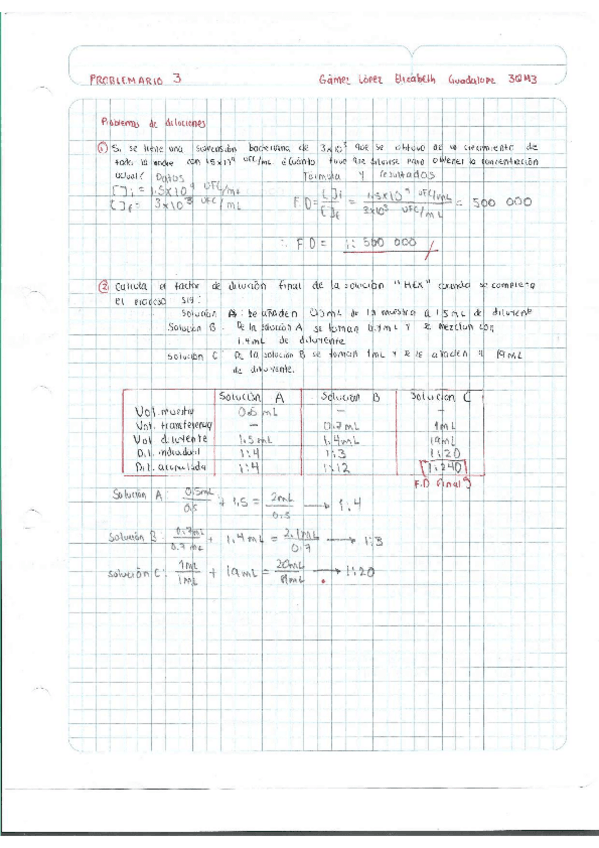 PROBLEMARIO 3 Gámez López Elizabeth Guadalupe 3QM3
Problemas de diluciones
① Si se tiene una suspensión bacteriana de 3x10³ que se obtuvo de un crecimiento de
toda la noche con 1.5x10⁹ UFC/mL ¿Cuánto tuvo que diluirse para obtener la concentración
actual? Datos Fórmula y resultados
[ ]i = 1.5x10⁹ UFC/mL
[ ]f = 3x10³ UFC/mL
F D = [ ]i / [ ]f = 1.5x10⁹ UFC/mL / 3x10³ UFC/mL = 500 000
∴ F D = 1: 500 000
② Calcula el factor de dilución final de la solución "HEX" cuando se completa
el proceso sig:
Solución A: Se añaden 0.5mL de la muestra a 1.5mL de diluyente
Solución B: De la solución A se toman 0.7mL y se mezclan con
1.4mL de diluyente
Solución C: De la solución B se toman 1mL y se le añaden 19mL
de diluyente.
Solución A Solución B Solución C
Vol. muestra 0.5mL – –
Vol. transferencia – 0.7mL 1mL
Vol diluyente 1.5mL 1.4mL 19mL
Dil. individual 1:4 1:3 1:20
Dil. acumulada 1:4 1:12 1:240
F.D final
Solución A: 0.5mL / 0.5 + 1.5 = 2mL / 0.5 → 1:4
Solución B: 0.7mL / 0.7mL + 1.4mL = 2.1mL / 0.7 → 1:3
Solución C: 1mL / 1mL + 19mL = 20mL / 1mL → 1:20